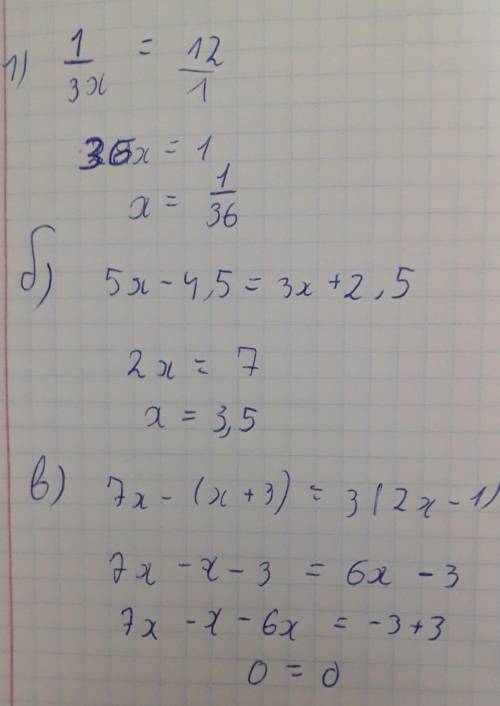 1) 1/3x = 12/1
36x = 1
x = 1/36
б) 5x - 4,5 = 3x + 2,5
2x = 7
x = 3,5
в) 7x - (x + 3) = 3(2x - 1)
7x - x - 3 = 6x - 3
7x - x - 6x = -3 + 3
0 = 0